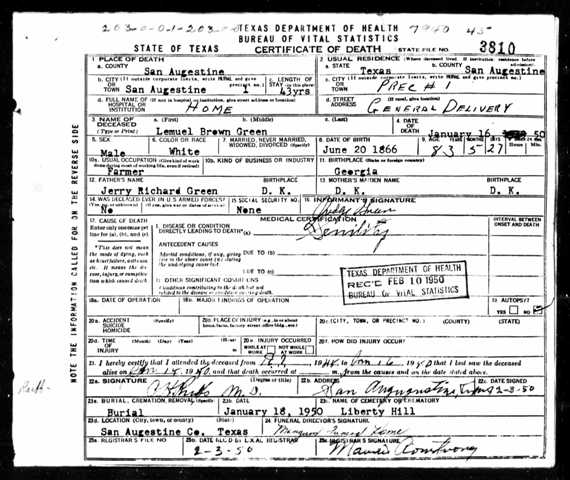 TEXAS DEPARTMENT OF HEALTH
BUREAU OF VITAL STATISTICS
STATE OF TEXAS CERTIFICATE OF DEATH STATE FILE NO. 3810
1 PLACE OF DEATH 2 USUAL RESIDENCE (Where deceased lived. If institution: residence before admission)
a. COUNTY San Augestine a. STATE Texas b. COUNTY San Augestine
b. CITY (If outside corporate limits, write RURAL and give precinct no.) OR TOWN San Augestine 1 c. LENGTH OF STAY 43yrs c. CITY OR TOWN PREC # 1
d. FULL NAME OF HOSPITAL OR INSTITUTION HOME d. STREET ADDRESS GENERAL DELIVERY
3 NAME OF DECEASED (Type or Print) a. (First) b. (Middle) c. (Last) 4 DATE OF DEATH
Lemuel Brown Green January 16 50
5 SEX Male 6 COLOR OR RACE White 7 MARRIED, NEVER MARRIED, WIDOWED, DIVORCED (Specify) 8 DATE OF BIRTH June 20 1866 9 AGE 83 5 27
10a. USUAL OCCUPATION Farmer 10b. KIND OF BUSINESS OR INDUSTRY 11 BIRTHPLACE (State or foreign country) Georgia
12 FATHER'S NAME 13 MOTHER'S MAIDEN NAME
Jerry Richard Green D. K. D. K.
14 WAS DECEASED EVER IN U.S. ARMED FORCES? No 15 SOCIAL SECURITY NO. None 16 INFORMANT'S SIGNATURE
17 CAUSE OF DEATH MEDICAL CERTIFICATION INTERVAL BETWEEN ONSET AND DEATH
Enter only one cause per line for (a), (b), and (c) I DISEASE OR CONDITION DIRECTLY LEADING TO DEATH* (a) Senility
ANTECEDENT CAUSES
*This does not mean the mode of dying, such as heart failure, asthenia, etc. It means the disease, injury, or complication which caused death. Morbid conditions, if any, giving rise to the above cause (a) stating the underlying cause last DUE TO (b)
DUE TO (c)
II OTHER SIGNIFICANT CONDITIONS
Conditions contributing to the death but not related to the disease or condition causing death.
TEXAS DEPARTMENT OF HEALTH
REC'D FEB 10 1950
BUREAU OF VITAL STATISTICS
18a. DATE OF OPERATION 18b. MAJOR FINDINGS OF OPERATION 19 AUTOPSY? YES NO
20a. ACCIDENT SUICIDE HOMICIDE (Specify) 20b. PLACE OF INJURY (e.g., in or about home, farm, factory, street, office bldg., etc.) 20c. (CITY, TOWN, OR PRECINCT NO.) (COUNTY) (STATE)
20d. TIME OF INJURY (Month) (Day) (Year) (Hour) 20e. INJURY OCCURRED WHILE AT WORK NOT WHILE AT WORK 20f. HOW DID INJURY OCCUR?
21. I hereby certify that I attended the deceased from that I last saw the deceased
alive on and that death occurred at m., from the causes and on the date stated above.
22a. SIGNATURE M.D. (Degree or title) 22b. ADDRESS San Augustine 22c. DATE SIGNED 2-3-50
23a. BURIAL, CREMATION, REMOVAL (Specify) 23b. DATE 23c. NAME OF CEMETERY OR CREMATORY
Burial January 18, 1950 Liberty Hill
23d. LOCATION (City, town, or county) (State) 24 FUNERAL DIRECTOR'S SIGNATURE
San Augustine Co. Texas Funeral Home
25a. REGISTRAR'S FILE NO. 25b. DATE REC'D BY LOCAL REGISTRAR 25c. REGISTRAR'S SIGNATURE
2-3-50 Armstrong
NOTE THE INFORMATION CALLED FOR ON THE REVERSE SIDE